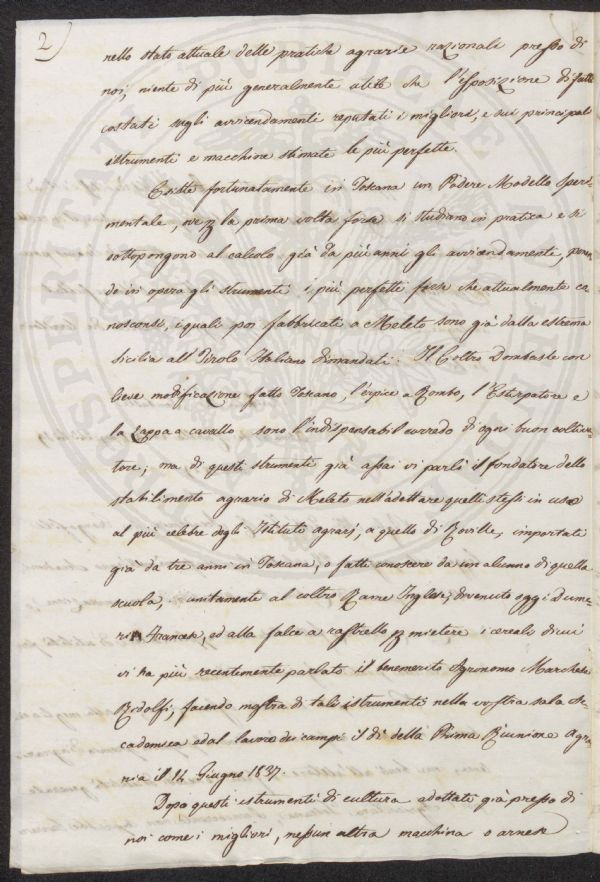 2)
nello stato attuale delle pratiche agrarie razionali presso di
noi, niente di più generalmente utile che l'esposizione di fatti
costati sugli avvicendamenti reputati i migliori, e sui principali
istrumenti e macchine stimate le più perfette.
Esiste fortunatamente in Toscana un Podere Modello Speri-
mentale, ove la prima volta forse si studiano in pratica e si
sottopongono al calcolo già da più anni gli avvicendamenti, ponen-
do in opera gli strumenti i più perfetti forse che attualmente co-
nosconsi, i quali poi fabbricati a Meleto sono già dalla estrema
Sicilia all Tirolo Italiano dimandati. Il Coltro Dombasle con
lieve modificazione fatto Toscano, l'erpice a Rombo, l'Estirpatore e
la Zappa a cavallo sono l'indispensabil corredo di ogni buon coltiva-
tore; ma di questi strumenti già assai vi parlò il fondatore dello
stabilimento agrario di Meleto nell'adottare quelli stessi in uso
al più celebre degli Istituti agrarj, a quello di Roville, importati
già da tre anni in Toscana, o fatti conoscere da un alunno di quella
scuola, unitamente al coltro Rame Inglese, divenuto oggi Dume-
rin Francese, ed alla falce a rastrello p mietere i cereali di cui
vi ha più recentemente parlato il benemerito Agronomo Marchese
Ridolfi, facendo mostra di tali istrumenti nella vostra sala Ac-
cademica e dal lavoro dei campi il dì della Prima Riunione Agra-
ria il 14 Giugno 1837.
Dopo questi istrumenti di cultura adottati già presso di
noi come i migliori, nessun altra macchina o arnese